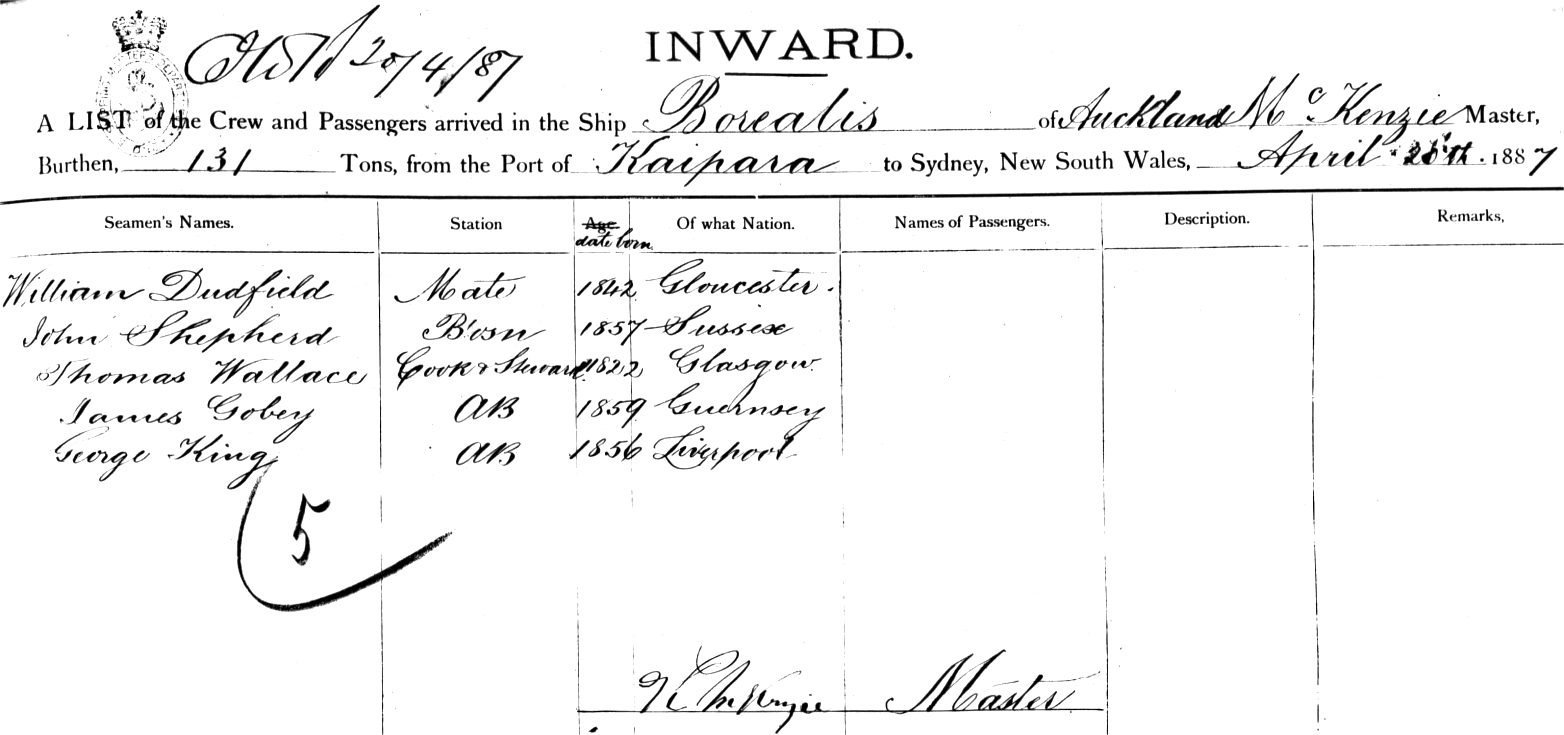 20/4/87
INWARD.
A LIST of the Crew and Passengers arrived in the Ship Borealis of Auckland McKenzie Master,
Burthen, 131 Tons, from the Port of Kaipara to Sydney, New South Wales, April 20th 1887
Seamen's Names. Station Age Of what Nation. Names of Passengers. Description. Remarks,
date born
William Dudfield Mate 1842 Gloucester.
John Shepherd B'osn 1857 Sussex
Thomas Wallace Cook & Steward 1822 Glasgow.
James Gobey AB 1859 Guernsey
George King AB 1856 Liverpool
5
K McKenzie Master